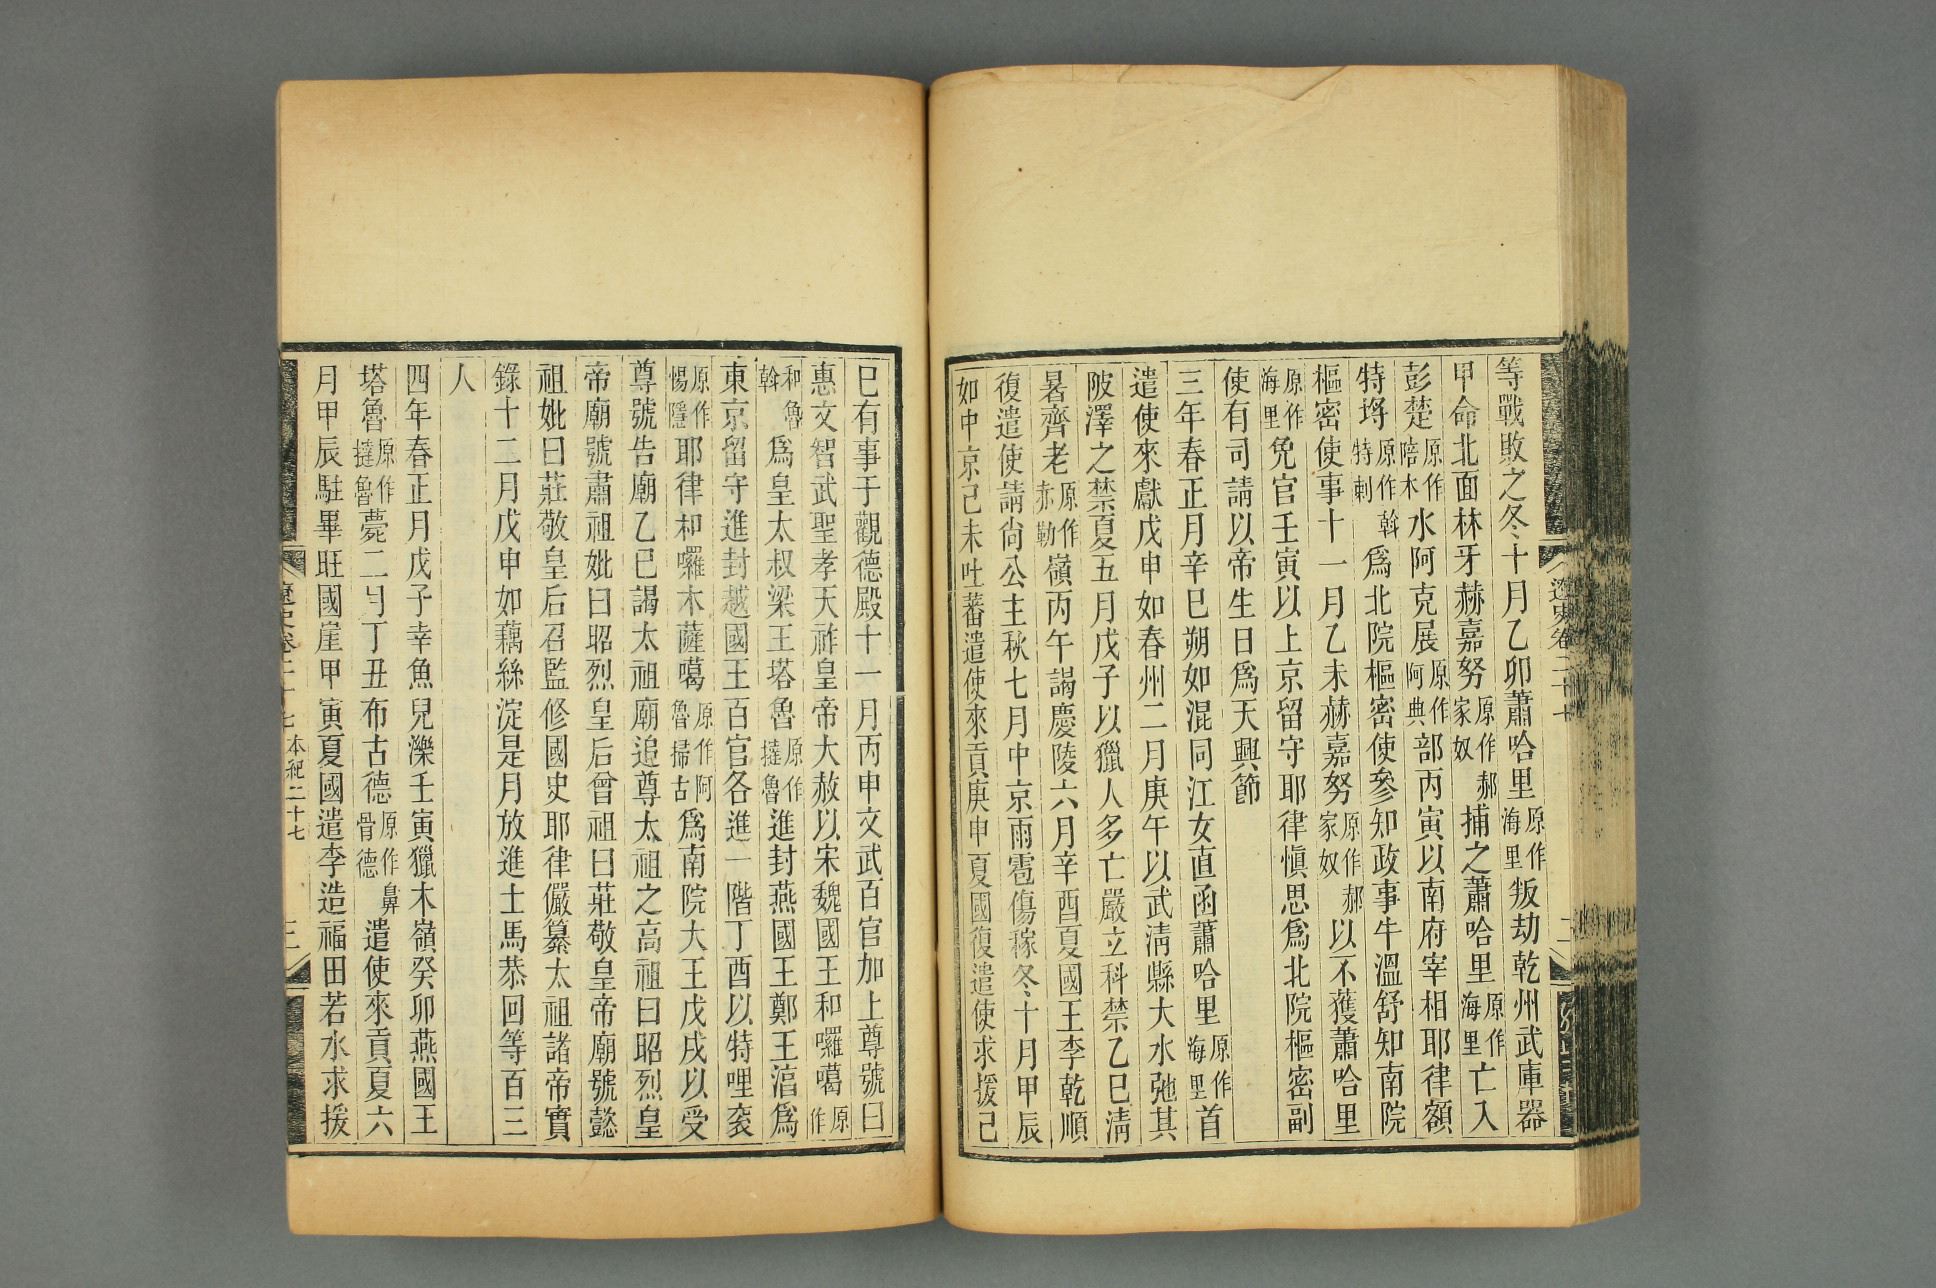 等戰敗之冬十月乙卯蕭哈里原作海里叛劫乾州武庫器
甲命北面林牙赫嘉努原作郝家奴捕之蕭哈里原作海里亡入
彭楚原作陪朮水阿克展原作阿典部丙寅以南府宰相耶律額
特埒原作斡特剌爲北院樞密使參知政事牛溫舒知南院
樞密使事十一月乙未赫嘉努原作郝家奴以不獲蕭哈里
原作海里免官壬寅以上京留守耶律愼思爲北院樞密副
使有司請以帝生日爲天興節
三年春正月辛巳朔如混同江女直函蕭哈里原作海里首
遣使來獻戊申如春州二月庚午以武淸縣大水弛其
陂澤之禁夏五月戊子以獵人多亡嚴立科禁乙巳淸
暑齊老原作赤勒嶺丙午謁慶陵六月辛酉夏國王李乾順
復遣使請尙公主秋七月中京雨雹傷稼冬十月甲辰
如中京己未吐蕃遣使來貢庚申夏國復遣使求援己
巳有事于觀德殿十一月丙申文武百官加上尊號曰
惠文智武聖孝天祚皇帝大赦以宋魏國王和囉噶原作
和魯斡爲皇太叔梁王塔魯原作撻魯進封燕國王鄭王涫爲
東京留守進封越國王百官各進一階丁酉以特哩袞
原作惕隱耶律和囉木薩噶原作阿魯掃古爲南院大王戊戌以受
尊號告廟乙巳謁太祖廟追尊太祖之高祖曰昭烈皇
帝廟號肅祖妣曰昭烈皇后曾祖曰莊敬皇帝廟號懿
祖妣曰莊敬皇后召監修國史耶律儼纂太祖諸帝實
錄十二月戊申如藕絲淀是月放進士馬恭回等百三
人
四年春正月戊子幸魚兒濼壬寅獵木嶺癸卯燕國王
塔魯原作撻魯薨二月丁丑布古德原作鼻骨德遣使來貢夏六
月甲辰駐畢旺國崖甲寅夏國遣李造福田若水求援
遼史卷二十七 本紀二十七 三
遼史卷二十七 二